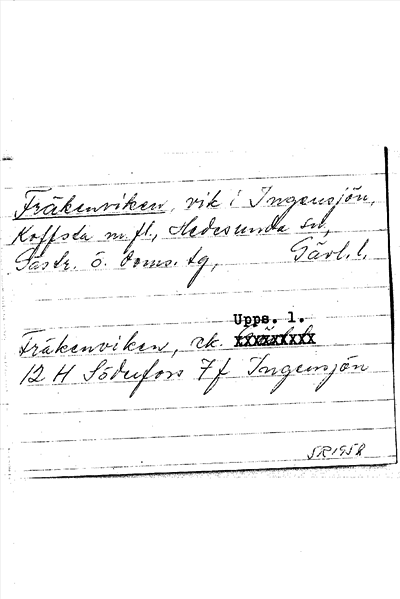 Fräkenviken, vik i Ingensjön,
Koffsta m.fl., Hedesunda sn,
Gästr. ö. doms. tg, Gävl. l.
Upps. l.
Fräkenviken, ek. xxxxxxxxx
12 H Söderfors 7 f Ingensjön
SR 1958